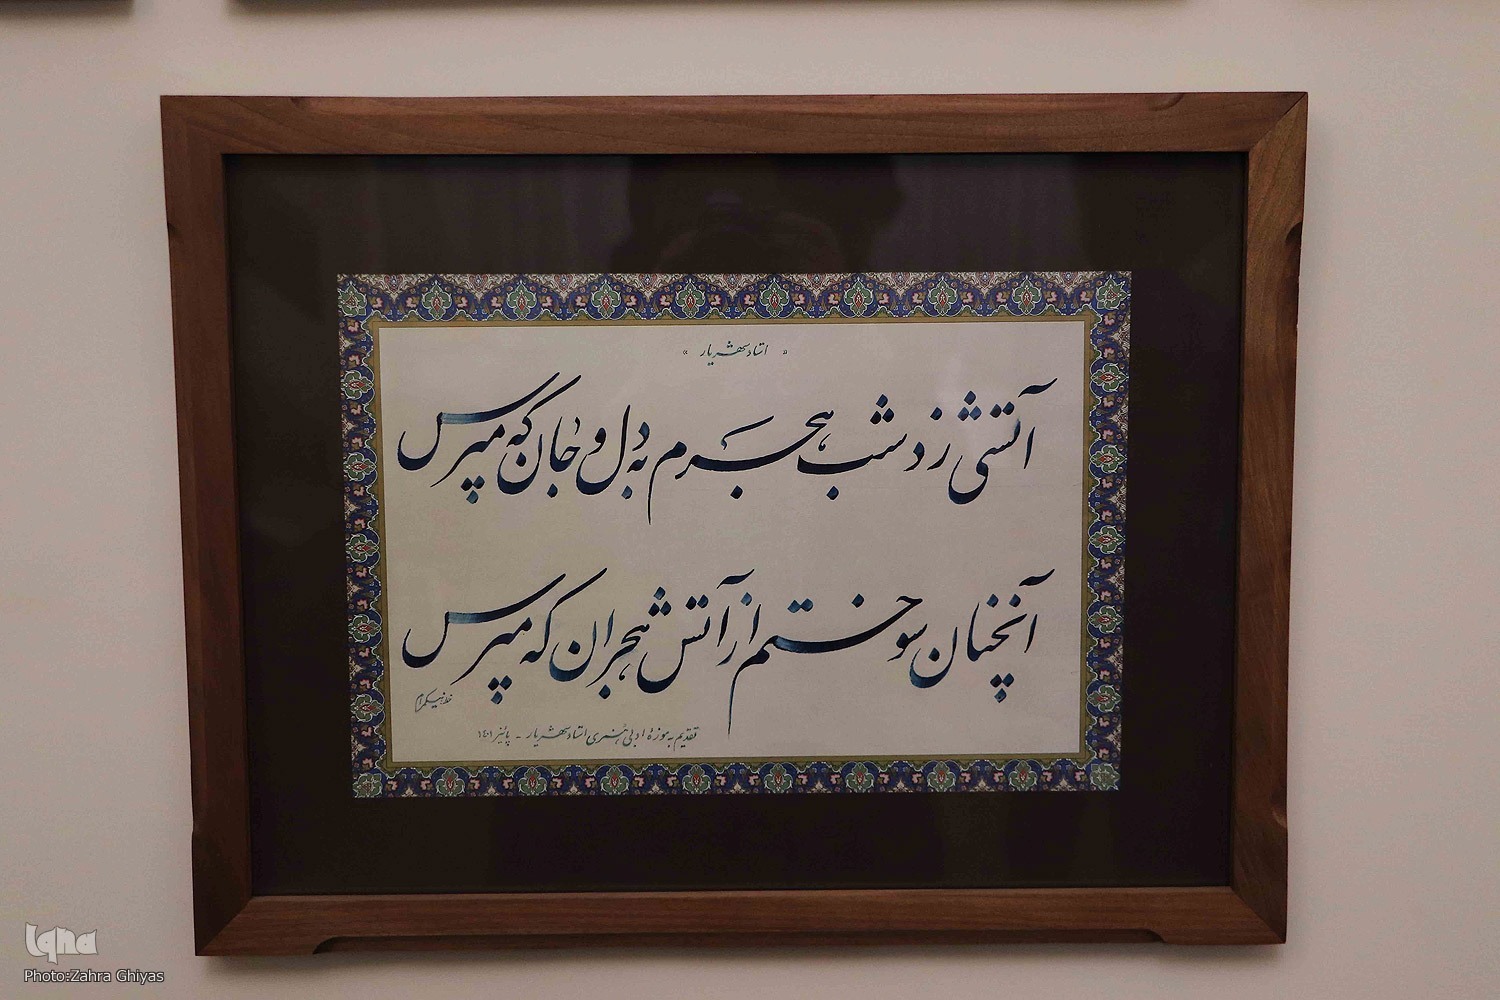 « استاد شهریار »
آتشی زد شب هجرم به دل و جان که مپرس
آنچنان سوختم از آتش هجران که مپرس
تقدیم به موزهٔ ادبی هنری استاد شهریار - پائیز ۱۴۰۱
iqna
Photo:Zahra Ghiyas